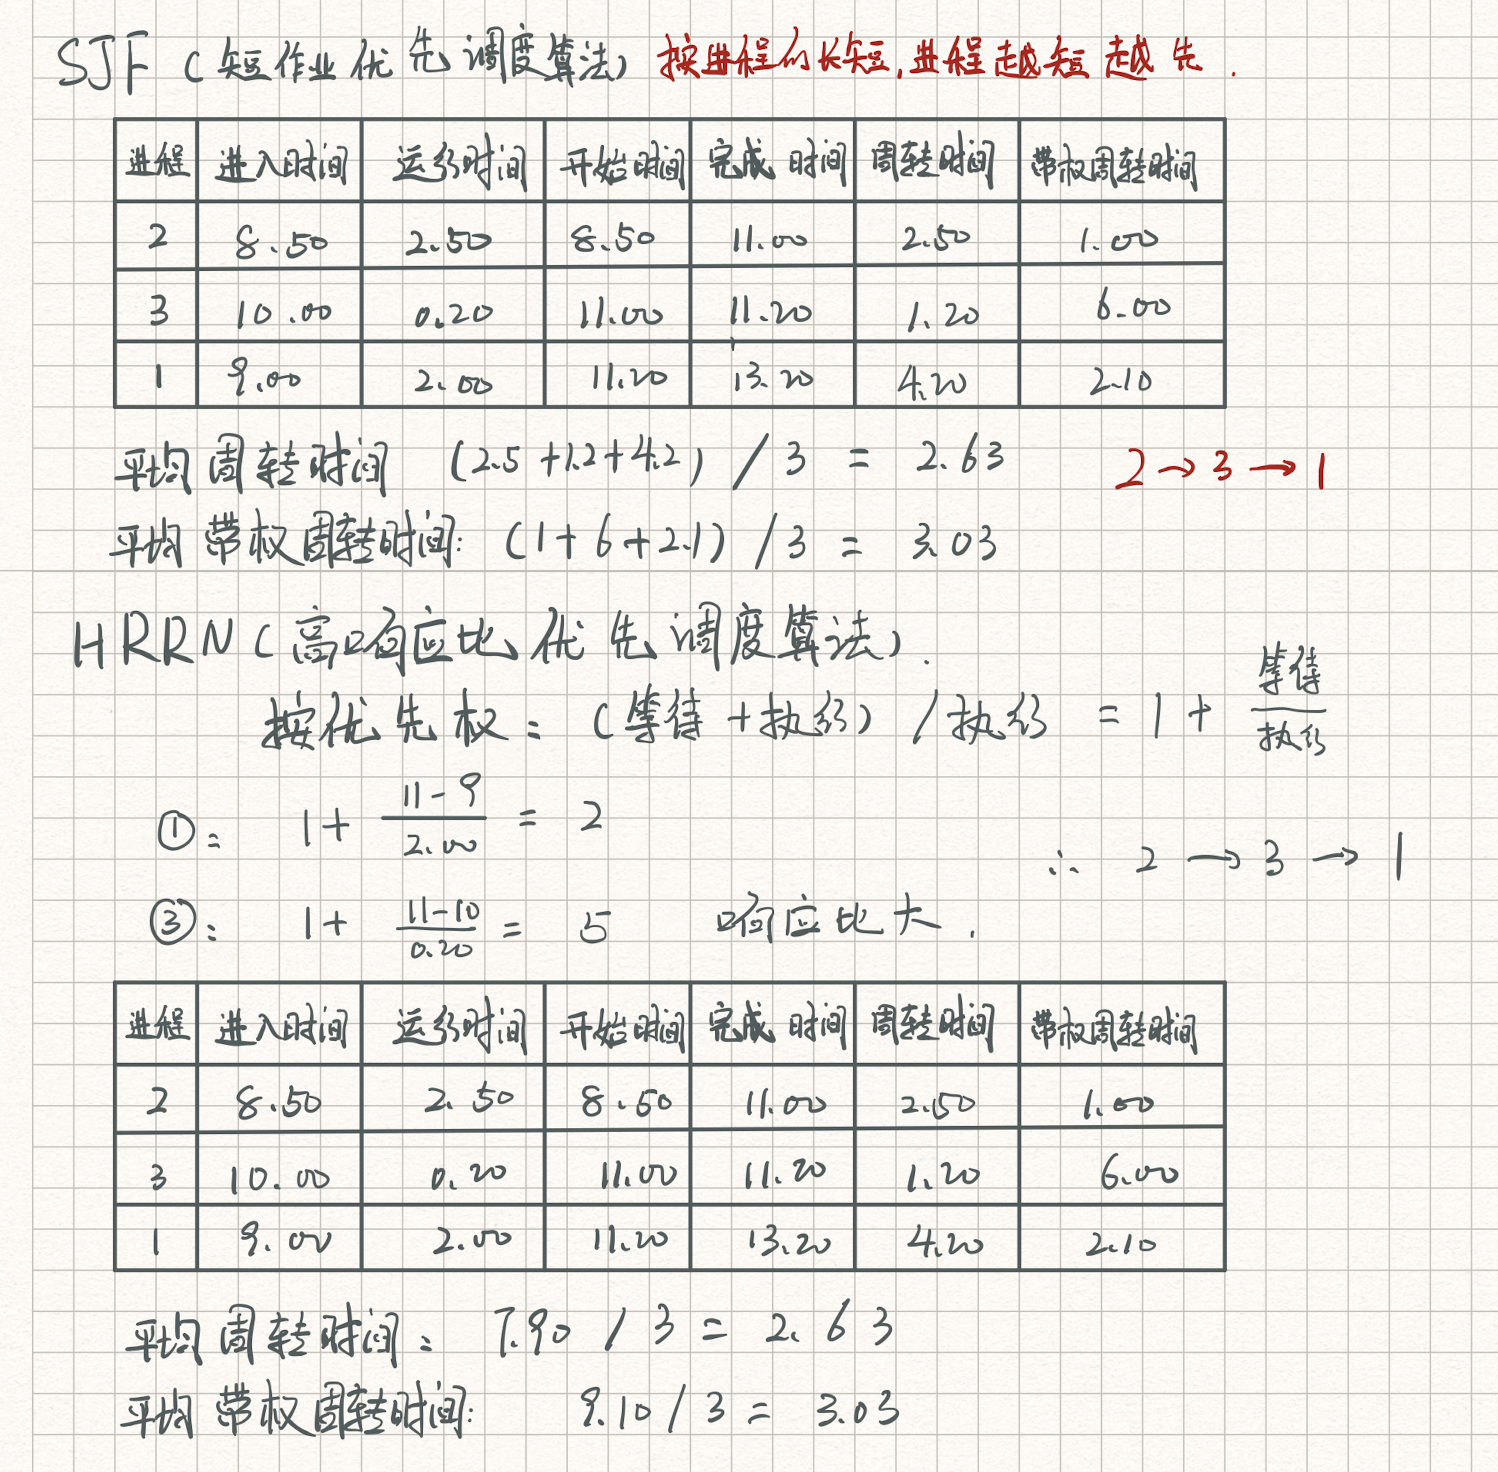 SJF（短作业优先调度算法）按进程的长短,进程越短越先.
进程 进入时间 运行时间 开始时间 完成时间 周转时间 带权周转时间
2 8.50 2.50 8.50 11.00 2.50 1.00
3 10.00 0.20 11.00 11.20 1.20 6.00
1 9.00 2.00 11.20 13.20 4.20 2.10
平均周转时间 (2.5+1.2+4.2) / 3 = 2.63 2→3→1
平均带权周转时间: (1+6+2.1) / 3 = 3.03
HRRN（高响应比优先调度算法）.
按优先权: (等待+执行) / 执行 = 1 + 等待/执行
①: 1 + (11-9)/2.00 = 2
∴ 2→3→1
③: 1 + (11-10)/0.20 = 5 响应比大.
进程 进入时间 运行时间 开始时间 完成时间 周转时间 带权周转时间
2 8.50 2.50 8.50 11.00 2.50 1.00
3 10.00 0.20 11.00 11.20 1.20 6.00
1 9.00 2.00 11.20 13.20 4.20 2.10
平均周转时间: 7.90 / 3 = 2.63
平均带权周转时间: 9.10 / 3 = 3.03